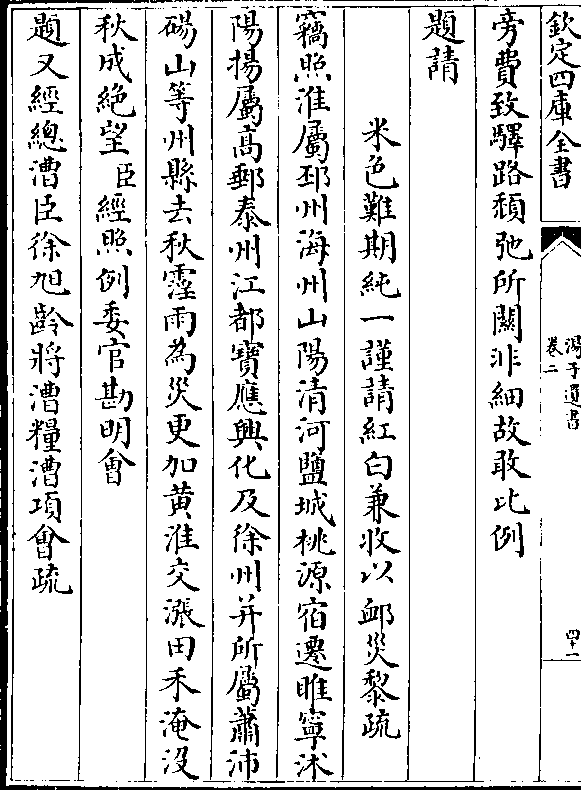 欽定四庫全書
湯子遺書
卷二
四十一
旁費致驛路頽弛所關非細故敢比例
題請
米色難期純一謹請紅白兼收以䘏災黎疏
竊照淮屬邳州海州山陽清河鹽城桃源宿遷睢寧沭
陽揚屬高郵泰州江都寶應興化及徐州并所屬蕭沛
碭山等州縣去秋霪雨為災更加黄淮交漲田禾淹没
秋成絶望臣經照例委官勘明會
題又經總漕臣徐旭齡將漕糧漕項會疏